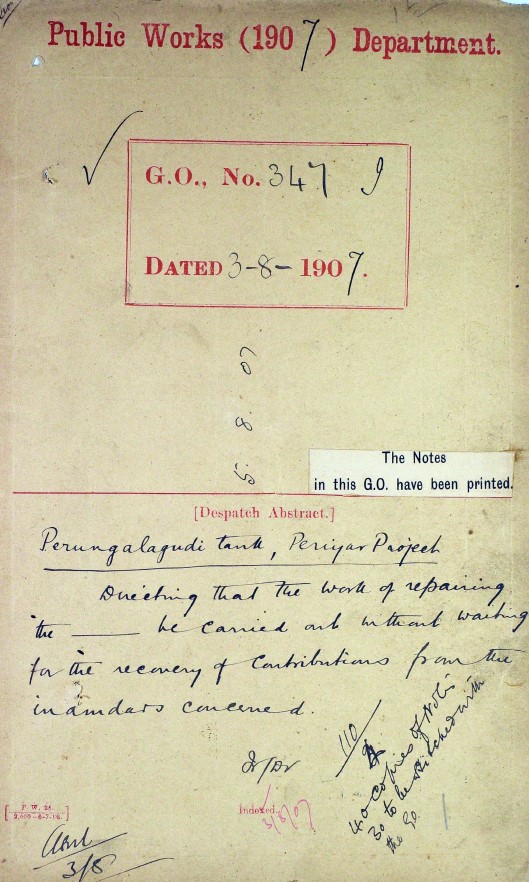 Public Works (1907) Department.
G.O., No. 347 I
DATED 3-8-1907.
5. 8. 07
The Notes
in this G.O. have been printed.
[Despatch Abstract.]
Perungalagudi tank, Periyar Project
Directing that the work of repairing
the ____ be carried out without waiting
for the recovery of Contributions from the
inamdars concerned.
110
40 copies of Notes
30 to be stitched with
the GO.
Indexed.
3/8/07
3/8